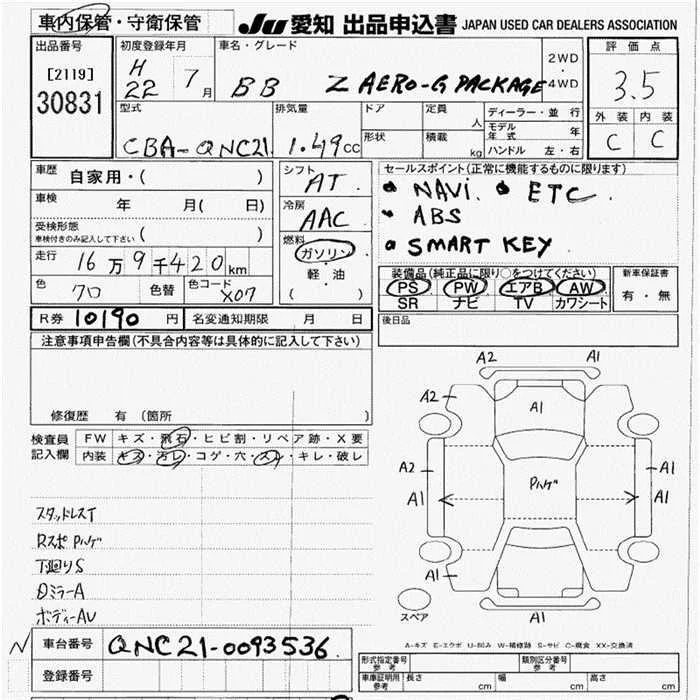 車内保管・守衛保管
JU 愛知 出品申込書 JAPAN USED CAR DEALERS ASSOCIATION
出品番号
[2119]
30831
初度登録年月
H
22 7月
車名・グレード
BB Z AERO-G PACKAGE
2WD
・
4WD
評価点
3.5
外装 内装
C C
型式
CBA-QNC21
排気量
1.49cc
ドア
形状
定員
人
積載
kg
ディーラー・並行
モデル年式 年
ハンドル 左・右
車歴
自家用・( )
車検
年 月( 日)
受検形態
車検付きのみ記入して下さい ( )
走行
16万9千420km
色
クロ
色替
色コード
X07
シフト
AT
冷房
AAC
燃料
ガソリン
・
軽・油
( )
セールスポイント(正常に機能するものに限ります)
• NAVi. • ETC
• ABS
• SMART KEY
装備品(純正品に限り○をつけてください)
PS PW エアB AW
SR ナビ TV カワシート
新車保証書
有・無
R券 10190 円
名変通知期限 月 日
後日品
注意事項申告欄(不具合内容等は具体的に記入して下さい)
修復歴 有(箇所 )
検査員記入欄
FW キズ・飛石・ヒビ割・リペア跡・X要
内装 キズ・汚レ・コゲ・穴・スレ・キレ・破レ
スタッドレスT
Rスポ Pハゲ
下廻りS
Dミラー A
ボディーAU
A2 A1
A2 A1
A2 Pハゲ A1
A1 A1
A1
A1
スペア
A-キズ E-エクボ U-凹み W-補修跡 S-サビ C-腐食 XX-交換済
車台番号
QNC21-0093536
登録番号
形式指定番号
参考
類別区分番号
参考
車庫証明用
参考
長さ cm
幅 cm
高さ cm